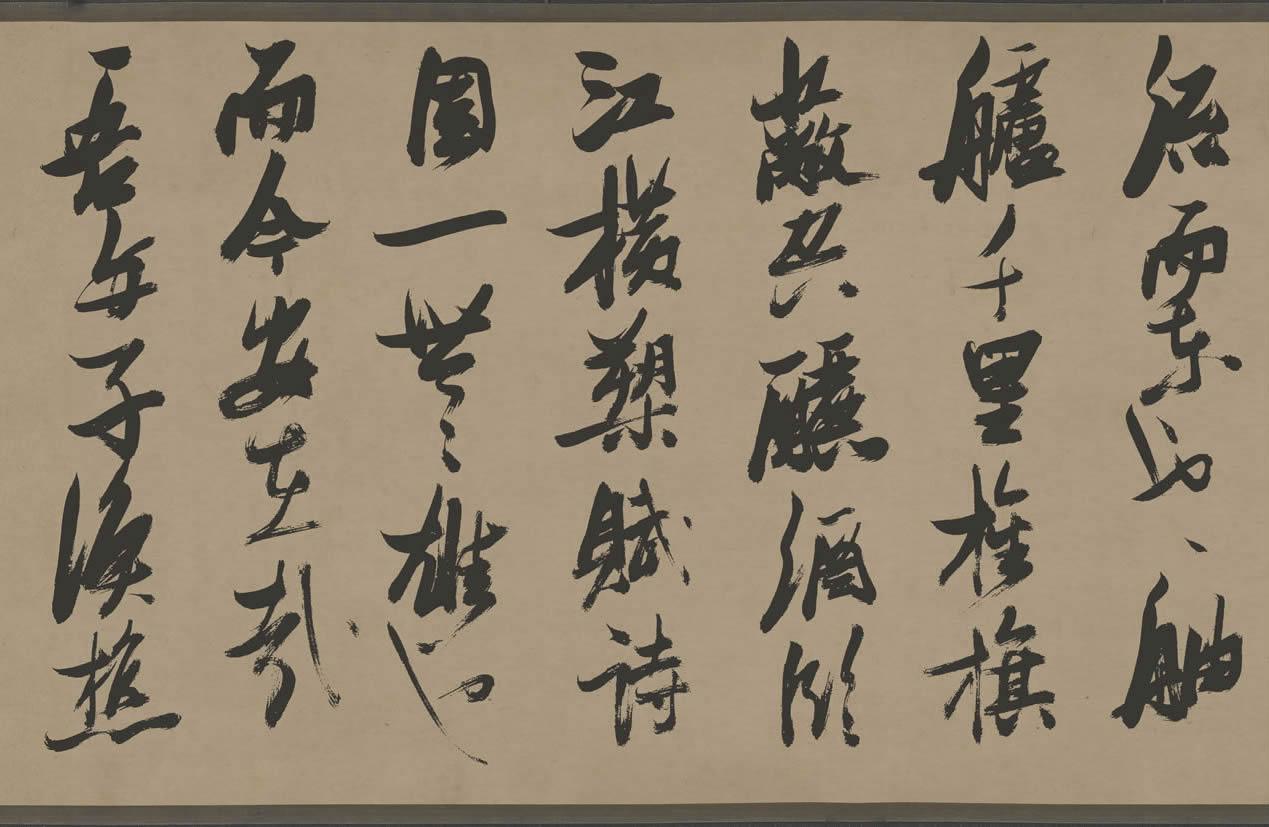 流而東也舳
艫千里旌旗
蔽空釃酒臨
江橫槊賦詩
固一世之雄也
而今安在哉
吾与子漁樵